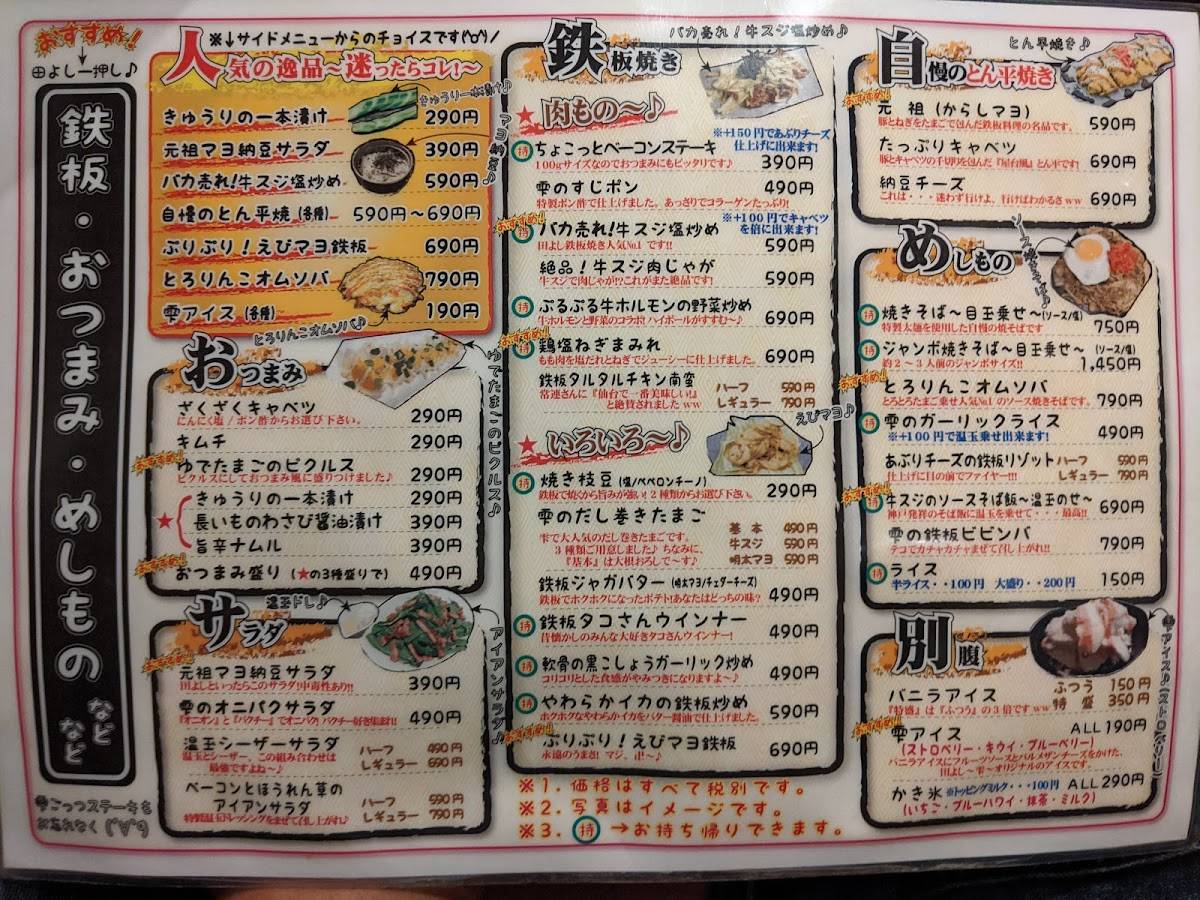 おすすめ!
田よし一押し♪
鉄板・おつまみ・めしもの
などなど
※↓サイドメニューからのチョイスです(^o^)/
人気の逸品~迷ったらコレ!~
きゅうりの一本漬け 290円
きゅうり一本漬け♪
元祖マヨ納豆サラダ 390円
バカ売れ!牛スジ塩炒め 590円
自慢のとん平焼(各種) 590円~690円
ぷりぷり!えびマヨ鉄板 690円
とろりんこオムソバ 790円
雫アイス(各種) 190円
とろりんこオムソバ♪
おつまみ
ゆでたまごのピクルス♪
ざくざくキャベツ 290円
にんにく塩/ポン酢からお選び下さい。
キムチ 290円
おすすめ!
ゆでたまごのピクルス 290円
ピクルスにしておつまみ風に盛りつけました♪
きゅうりの一本漬け 290円
★ 長いものわさび醤油漬け 390円
旨辛ナムル 390円
おすすめ!
おつまみ盛り(★の3種盛りで) 490円
サラダ
温玉ドレ♪
アイアンサラダ♪
おすすめ!
元祖マヨ納豆サラダ 390円
田よしといったらこのサラダ!中毒性あり!!
雫のオニパクサラダ 490円
『オニオン』と『パクチー』でオニパク!パクチー好き集まれ!
温玉シーザーサラダ ハーフ 490円
温玉とシーザー、この組み合わせは
最強ですよね~♪ レギュラー 690円
ベーコンとほうれん草の
アイアンサラダ ハーフ 590円
特製温玉ドレッシングをまぜて召し上がれ♪ レギュラー 790円
鉄板焼き
バカ売れ!牛スジ塩炒め♪
★肉もの~♪
※+150円であぶりチーズ
仕上げに出来ます!
持 ちょこっとベーコンステーキ 390円
100gサイズなのでおつまみにもピッタリです♪
雫のすじポン 490円
特製ポン酢で仕上げました。あっさりでコラーゲンたっぷり!
おすすめ!
※+100円でキャベツ
を倍に出来ます!
持 バカ売れ!牛スジ塩炒め 590円
田よし鉄板焼き人気No.1です!!
絶品!牛スジ肉じゃが 590円
牛スジで肉じゃが!?これがまた絶品です!
持 ぷるぷる牛ホルモンの野菜炒め 690円
牛ホルモンと野菜のコラボ!ハイボールがすすむ~♪
おすすめ!
持 鶏塩ねぎまみれ 690円
もも肉を塩だれとねぎでジューシーに仕上げました。
鉄板タルタルチキン南蛮 ハーフ 590円
常連さんに『仙台で一番美味しい!』
と絶賛されましたww レギュラー 790円
★いろいろ~♪
えびマヨ♪
持 焼き枝豆(塩/ペペロンチーノ) 290円
鉄板で焼くから旨みが強い!2種類からお選び下さい。
雫のだし巻きたまご
雫で大人気のだし巻きたまごです。 基本 490円
3種類ご用意しました♪ ちなみに、 牛スジ 590円
『基本』は大根おろしで~す♪ 明太マヨ 590円
鉄板ジャガバター(明太マヨ/チェダーチーズ) 490円
鉄板でホクホクになったポテト!あなたはどっちの味?
持 鉄板タコさんウインナー 490円
昔懐かしのみんな大好きタコさんウインナー!
持 軟骨の黒こしょうガーリック炒め 490円
コリコリとした食感がやみつきになりますよ~♪
持 やわらかイカの鉄板炒め 590円
ホクホクなやわらかイカをバター醤油で仕上げました。
おすすめ!
ぷりぷり!えびマヨ鉄板 690円
永遠のうまさ! マジ、卍~♪
※1. 価格はすべて税別です。
※2. 写真はイメージです。
※3. 持→お持ち帰りできます。
自慢のとん平焼き
とん平焼き♪
おすすめ!
元祖(からしマヨ) 590円
豚とねぎをたまごで包んだ鉄板料理の名品です。
たっぷりキャベツ 690円
豚とキャベツの千切りを包んだ『屋台風』とん平です!
納豆チーズ 690円
これは・・・迷わず行けよ、行けばわかるさww
めしもの
ソース焼きそば♪
持 焼きそば~目玉乗せ~(ソース/塩) 750円
特製太麺を使用した自慢の焼そばです
持 ジャンボ焼きそば~目玉乗せ~ (ソース/塩) 1,450円
約2~3人前のジャンボサイズ!!
おすすめ!
とろりんこオムソバ 790円
とろとろたまご乗せ人気No.1のソース焼きそばです。
持 雫のガーリックライス 490円
※+100円で温玉乗せ出来ます!
あぶりチーズの鉄板リゾット ハーフ 590円
仕上げに目の前でファイヤー!!! レギュラー 790円
おすすめ!
持 牛スジのソースそば飯~温玉のせ~ 690円
神戸発祥のそば飯に温玉を乗せて・・・最高!!
雫の鉄板ビビンバ 790円
テコでカチャカチャまぜて召し上がれ!!
持 ライス 150円
半ライス・・100円 大盛り・・200円
別腹
バニラアイス ふつう 150円
『特盛』は『ふつう』の3倍ですww 特盛 350円
おすすめ!
雫アイス ALL190円
(ストロベリー・キウイ・ブルーベリー)
バニラアイスにフルーツソースとパルメザンチーズをかけた、
田よし~雫~オリジナルのアイスです。
かき氷 ※トッピングミルク・・・100円 ALL290円
(いちご・ブルーハワイ・抹茶・ミルク)